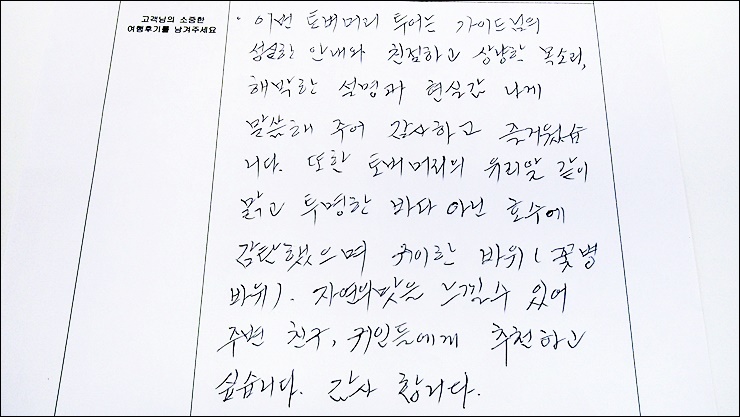 고객님의 소중한
여행후기를 남겨주세요
· 이번 토버머리 투어는 가이드님의
성실한 안내와 친절하고 상냥한 목소리,
해박한 설명과 현실감 나게
말씀해 주어 감사하고 즐거웠습
니다. 또한 토버머리의 유리알 같이
맑고 투명한 바다 아닌 호수에
감탄했으며 귀이한 바위 (꽃병
바위). 자연의 맛을 느낄 수 있어
주변 친구, 귀인들에게 추천하고
싶습니다. 감사 합니다.